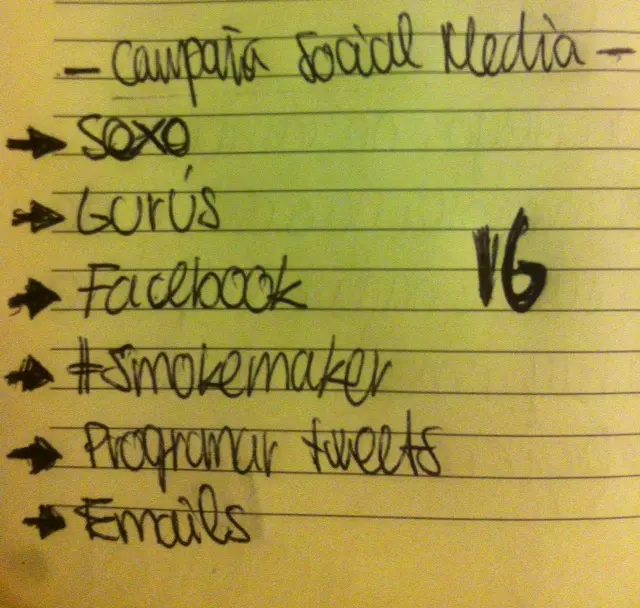 - Campaña Social Media -
→ SOXO
→ Gurús
→ Facebook
16
→ #Smokemaker
→ Programar tweets
→ Emails